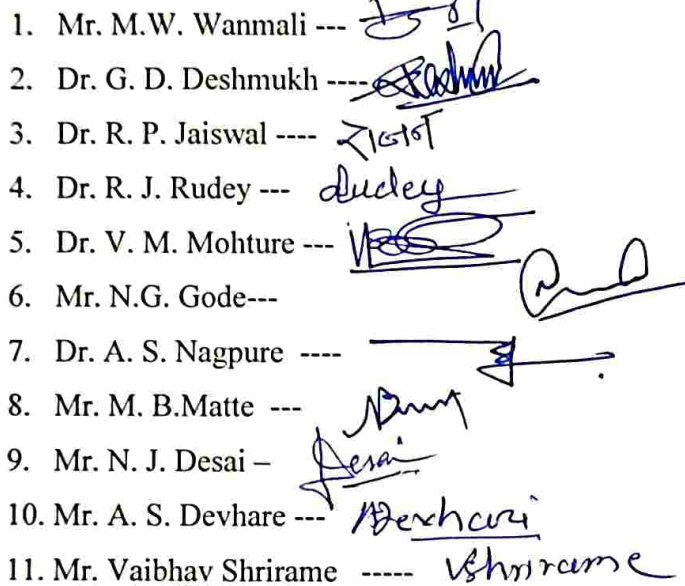 1. Mr. M.W. Wanmali ---
2. Dr. G. D. Deshmukh ----
3. Dr. R. P. Jaiswal ----
4. Dr. R. J. Rudey --- Rudey
5. Dr. V. M. Mohture ---
6. Mr. N.G. Gode---
7. Dr. A. S. Nagpure ----
8. Mr. M. B.Matte ---
9. Mr. N. J. Desai – Desai
10. Mr. A. S. Devhare ---
11. Mr. Vaibhav Shrirame ----- Vshrirame